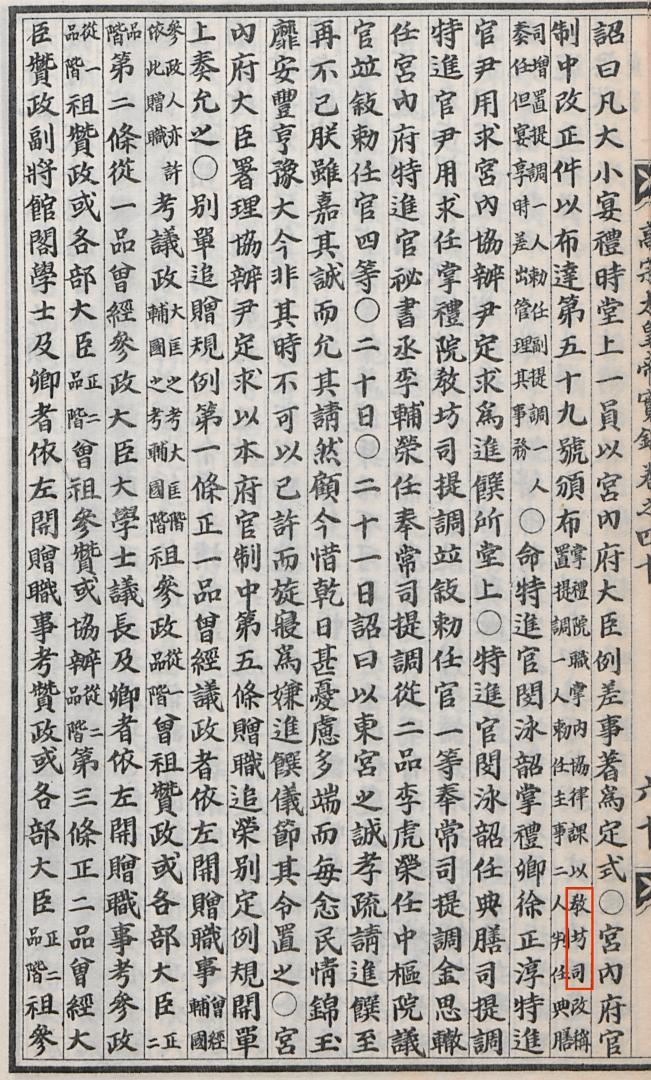 高宗太皇帝實錄卷之四十
詔曰凡大小宴禮時堂上一員以宮內府大臣例差事著爲定式○宮內府官
制中改正件以布達第五十九號頒布掌禮院職掌內協律課以敎坊司改稱置提調一人勅任主事二人判任典膳
司增置提調一人勅任副提調一人奏任但宴享時差出管理其事務○命特進官閔泳韶掌禮卿徐正淳特進
官尹用求宮內協辦尹定求爲進饌所堂上○特進官閔泳韶任典膳司提調
特進官尹用求任掌禮院敎坊司提調竝敍勅任官一等奉常司提調金思轍
任宮內府特進官祕書丞李輔榮任奉常司提調從二品李虎榮任中樞院議
官竝敍勅任官四等○二十日○二十一日詔曰以東宮之誠孝疏請進饌至
再不已朕雖嘉其誠而允其請然顧今惜乾日甚憂慮多端而每念民情錦玉
靡安豐亨豫大今非其時不可以已許而旋寢爲嫌進饌儀節其令置之○宮
內府大臣署理協辦尹定求以本府官制中第五條贈職追榮別定例規開單
上奏允之○別單追贈規例第一條正一品曾經議政者依左開贈職事曾經輔國
參政人亦許依此贈職考議政大匡之考大匡階輔國之考輔國階祖參政從一品階曾祖贊政或各部大臣正二
品階第二條從一品曾經參政大臣大學士議長及卿者依左開贈職事考參政
從一品階祖贊政或各部大臣正二品階曾祖參贊或協辦從二品階第三條正二品曾經大
臣贊政副將館閣學士及卿者依左開贈職事考贊政或各部大臣正二品階祖參